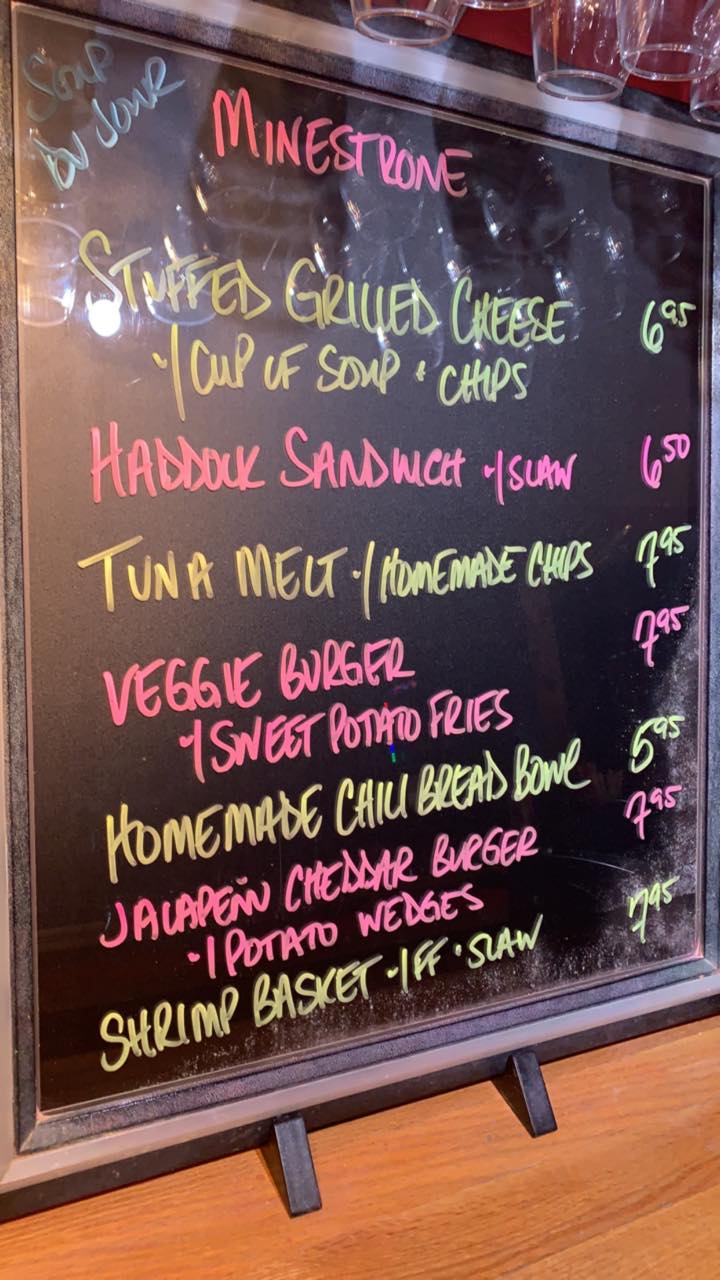 SOUP
DU JOUR
MINESTRONE
STUFFED GRILLED CHEESE 6.95
w/ CUP OF SOUP + CHIPS
HADDOCK SANDWICH w/ SLAW 6.50
TUNA MELT w/ HOMEMADE CHIPS 7.95
VEGGIE BURGER 7.95
w/ SWEET POTATO FRIES
HOMEMADE CHILI BREAD BOWL 5.95
JALAPEÑO CHEDDAR BURGER 7.95
w/ POTATO WEDGES
SHRIMP BASKET w/ FF + SLAW 7.95